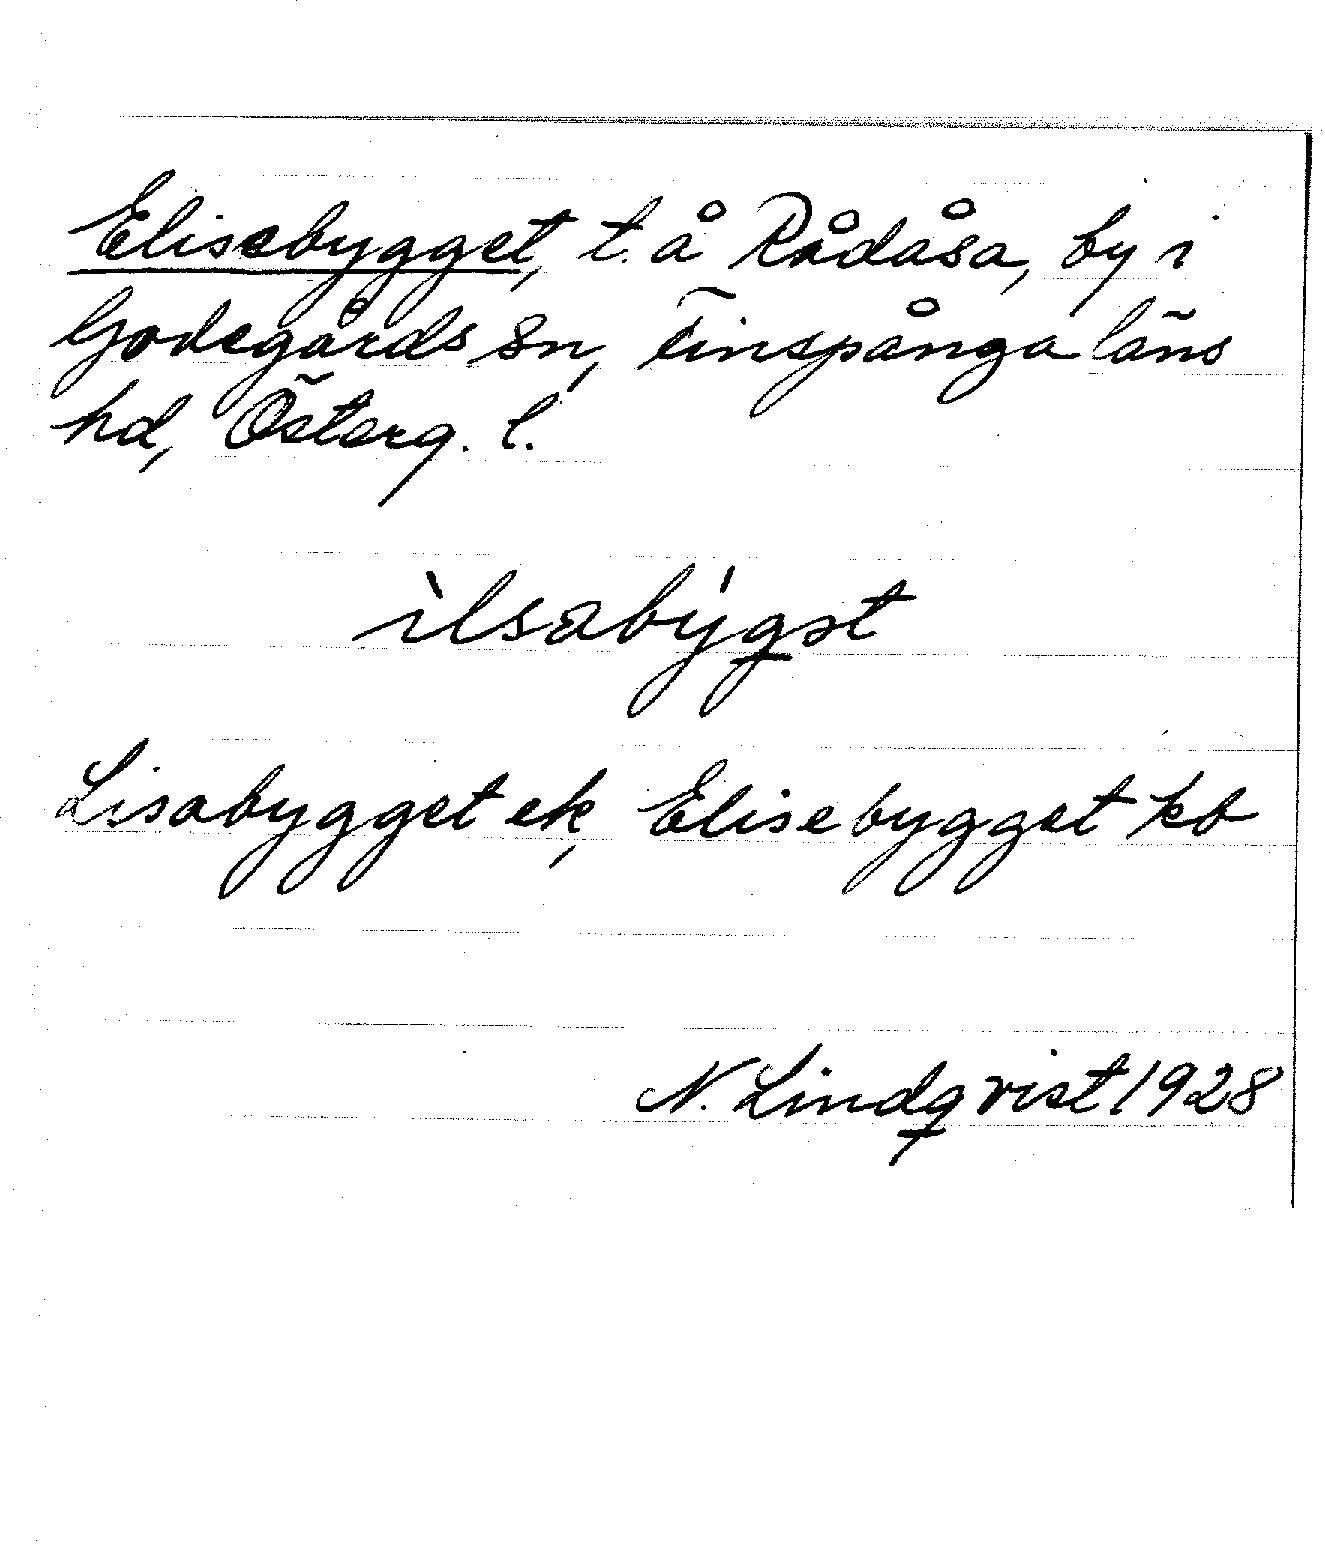 Elisebygget, t. å Rådåsa, by i
Godegårds sn, Finspånga läns
hd, Österg. l.
ìlsabýgət
Lisabygget ek, Elisebygget kb
N. Lindqvist 1928